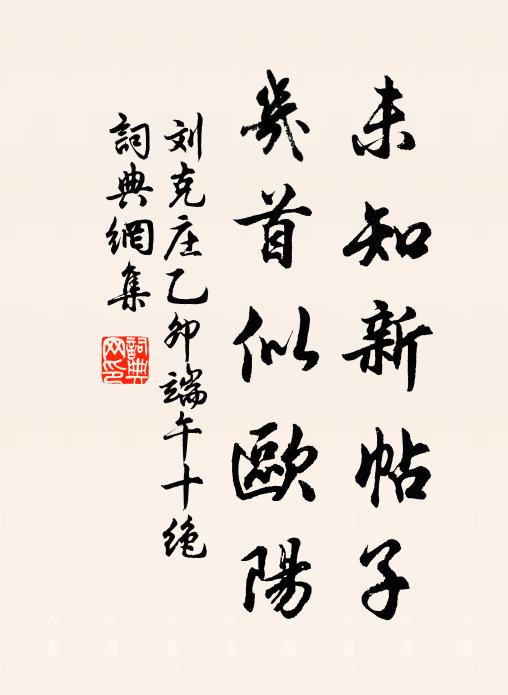 未知新帖子
幾首似歐陽
刘克庄乙卯端午十绝
詞典網集
詞典網印